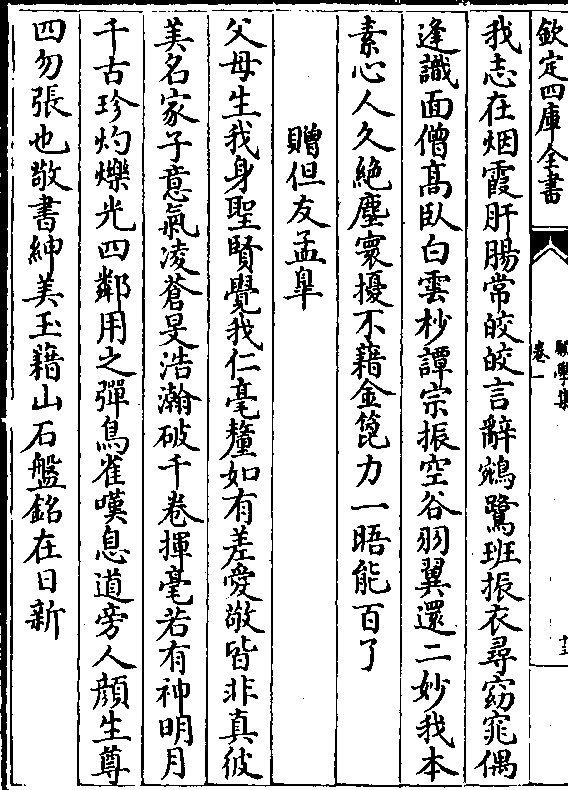 欽定四庫全書
卷一
我志在烟霞肝腸常皎皎言辭鵷鷺班振衣尋窈窕偶
逢識面僧高臥白雲杪譚宗振空谷羽翼還二妙我本
素心人久絶塵寰擾不藉金篦力一晤能百了
贈但友孟臯
父母生我身聖賢覺我仁毫釐如有差愛敬皆非真彼
美名家子意氣凌蒼旻浩瀚破千卷揮毫若有神明月
千古珍灼爍光四鄰用之彈鳥雀嘆息道旁人顔生尊
四勿張也敬書紳美玉藉山石盤銘在日新